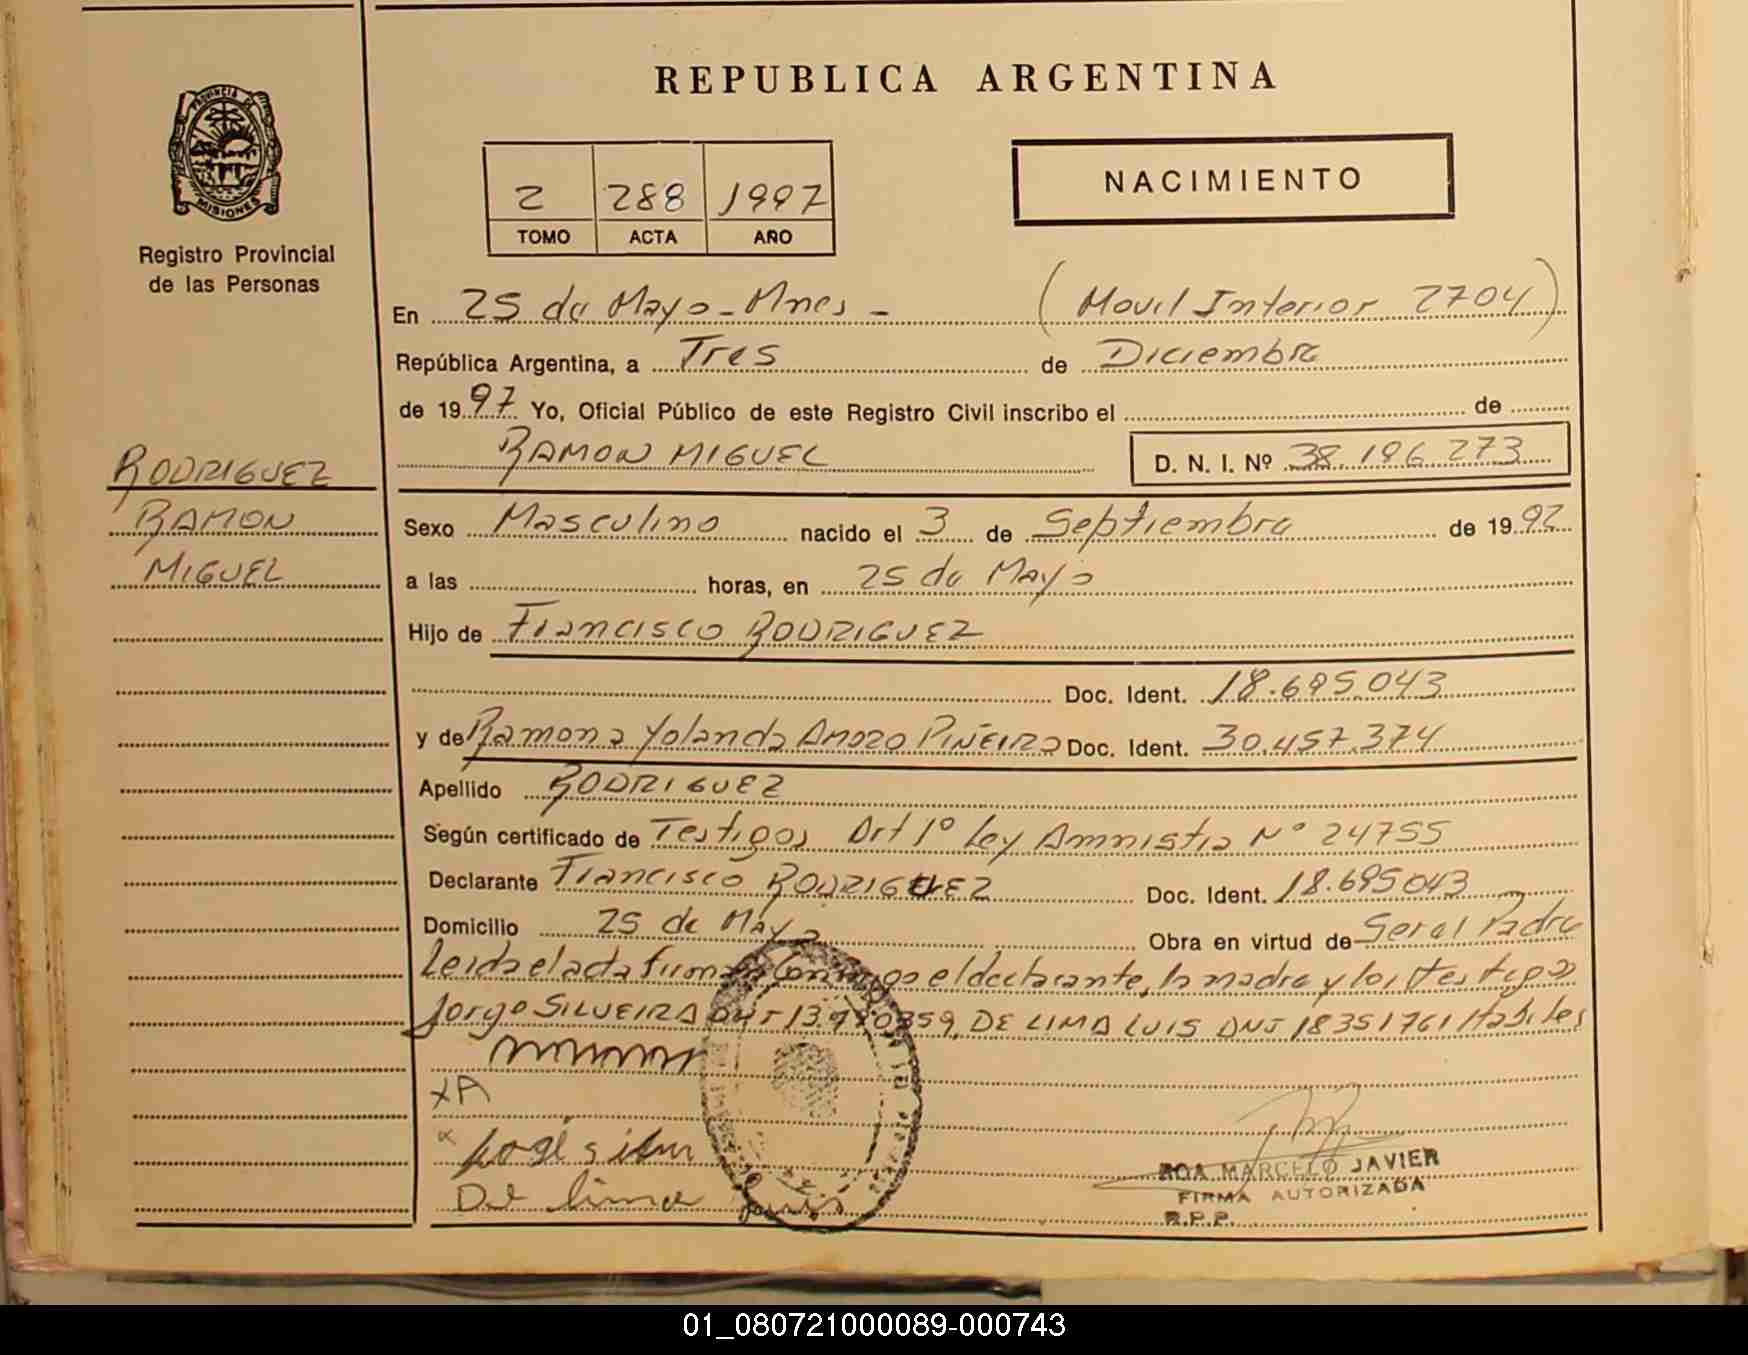 REPUBLICA ARGENTINA
PROVINCIA DE
MISIONES
Registro Provincial
de las Personas
2 288 1997
TOMO ACTA AÑO
NACIMIENTO
En 25 de Mayo - Mnes - (Movil Interior 2704)
República Argentina, a Tres de Diciembre
de 1997 Yo, Oficial Público de este Registro Civil inscribo el de
RAMON MIGUEL D. N. I. Nº 38.196.273
RODRIGUEZ
RAMON
MIGUEL
Sexo Masculino nacido el 3 de Septiembre de 1992
a las horas, en 25 de Mayo
Hijo de Francisco RODRIGUEZ
Doc. Ident. 18.695.043
y de Ramona Yolanda AMORO PIÑEIRO Doc. Ident. 30.457.374
Apellido RODRIGUEZ
Según certificado de Testigos Art 1º Ley Amnistia Nº 24755
Declarante Francisco RODRIGUEZ Doc. Ident. 18.695.043
Domicilio 25 de Mayo Obra en virtud de Seral Padre
Leida el acta firman Conmigo el declarante, la madre y los testigos
Jorge SILVEIRA DNI 13.970359, DE LIMA LUIS DNI 18351761 Habiles
XA
José silv
De lima Luis
ROA MARCELO JAVIER
FIRMA AUTORIZADA
R.P.P.
01_080721000089-000743